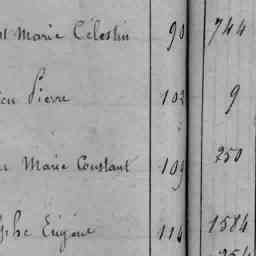 Marie Célestin 90 744
Pierre 102 9
Marie Constant 109 250
Eugène 114 1584
254